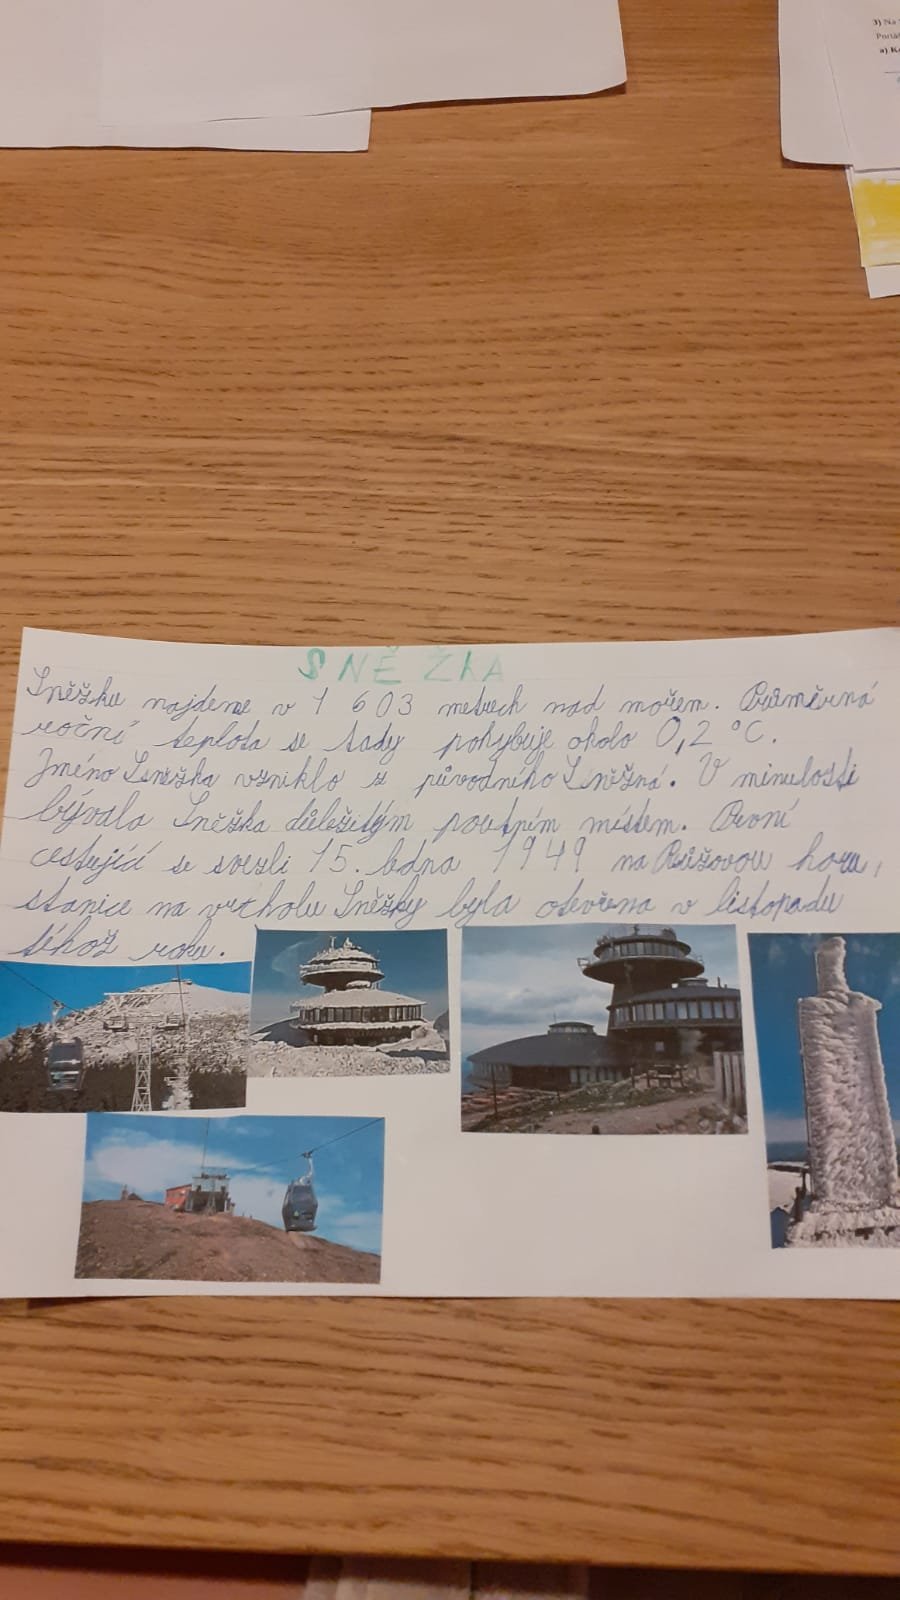 3) Na
a) K
SNĚŽKA
Sněžku najdeme v 1 603 metrech nad mořem. Průměrná
roční teplota se tady pohybuje okolo 0,2 °C.
Jméno Sněžka vzniklo z původního Sněžná. V minulosti
bývala Sněžka důležitým poutním místem. První
cestující se svezli 15. ledna 1949 na Růžovou horu,
stanice na vrcholu Sněžky byla otevřena v listopadu
téhož roku.